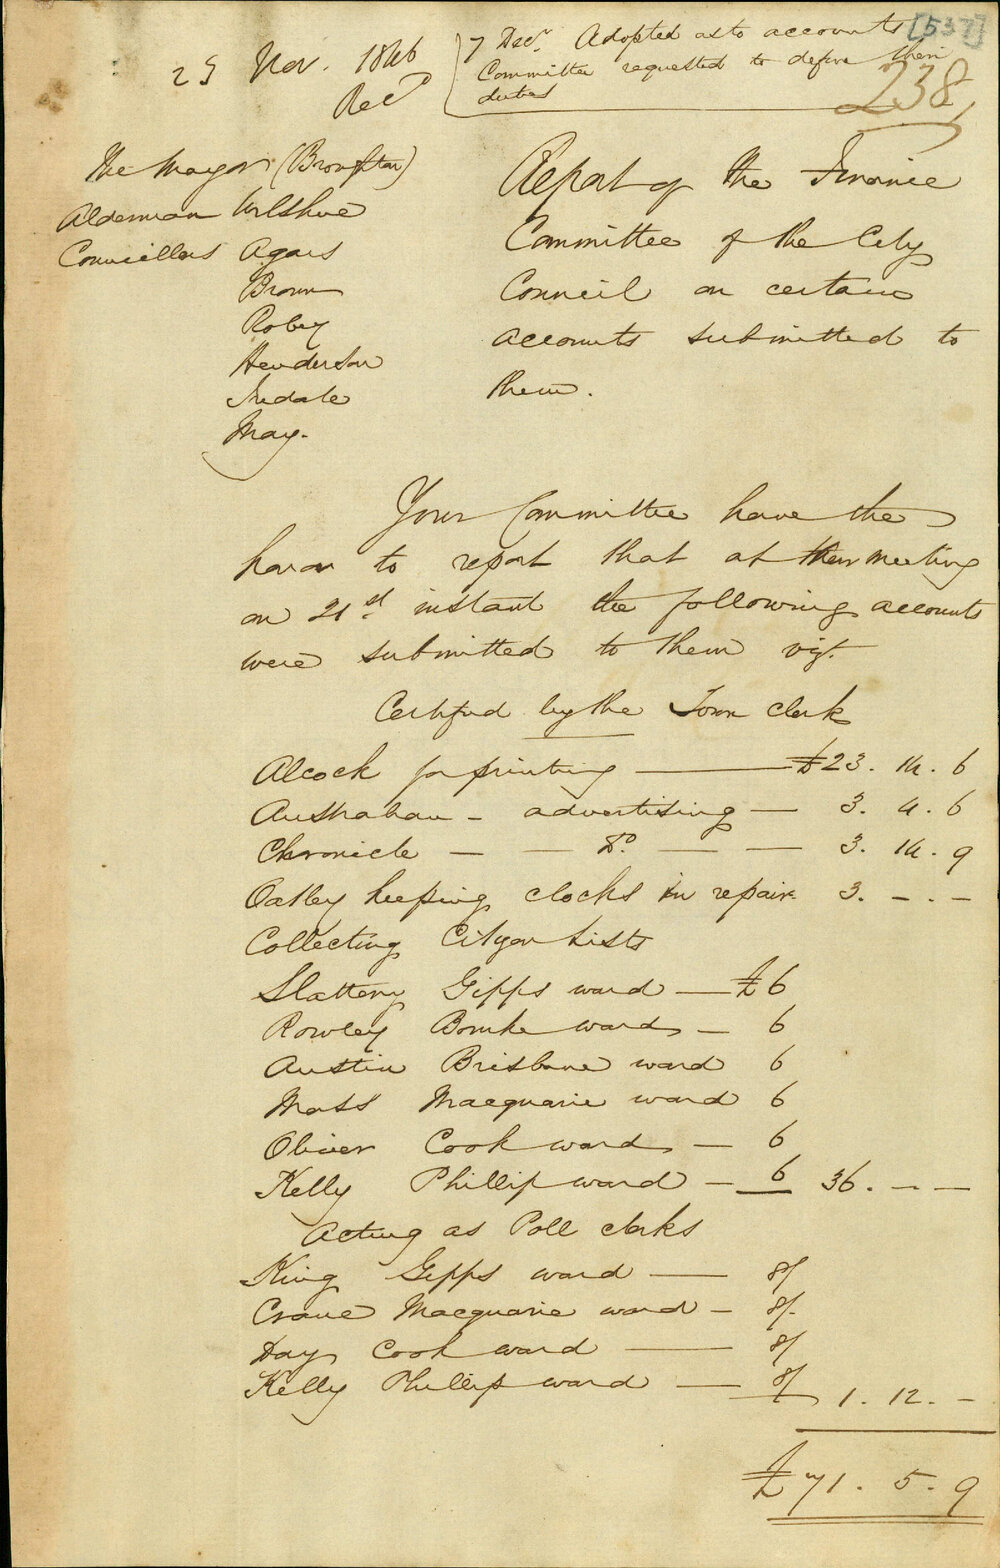 [537]
Nov. 1846
Recd
7 Decr. Adopted as to accounts
Committee requested to define their
duties
238
The Mayor (Broughton)
Alderman Wilshire
Councillors Agars
Brown
Robey
Henderson
Iredale
May.
Report of the Finance
Committee of the City
Council on certain
accounts submitted to
them.
Your Committee have the
honor to report that at their meeting
on 21st instant the following accounts
were submitted to them vizt.
Certified by the Town Clerk
Alcock for printing — £23. 14. 6
Australian - advertising — 3. 4. 6
Chronicle — — Do. — — 3. 14. 9
Oatley keeping clocks in repair 3. - . -
Collecting Citizen Lists
Slattery Gipps ward — £6
Rowley Bourke ward — 6
Austin Brisbane ward 6
Moss Macquarie ward 6
Oliver Cook ward — 6
Kelly Phillip ward — 6 36. - -
Acting as Poll clerks
King Gipps ward — 8/
Crane Macquarie ward — 8/.
Day Cook ward — 8/
Kelly Phillip ward — 8/ 1. 12. -
£71. 5. 9